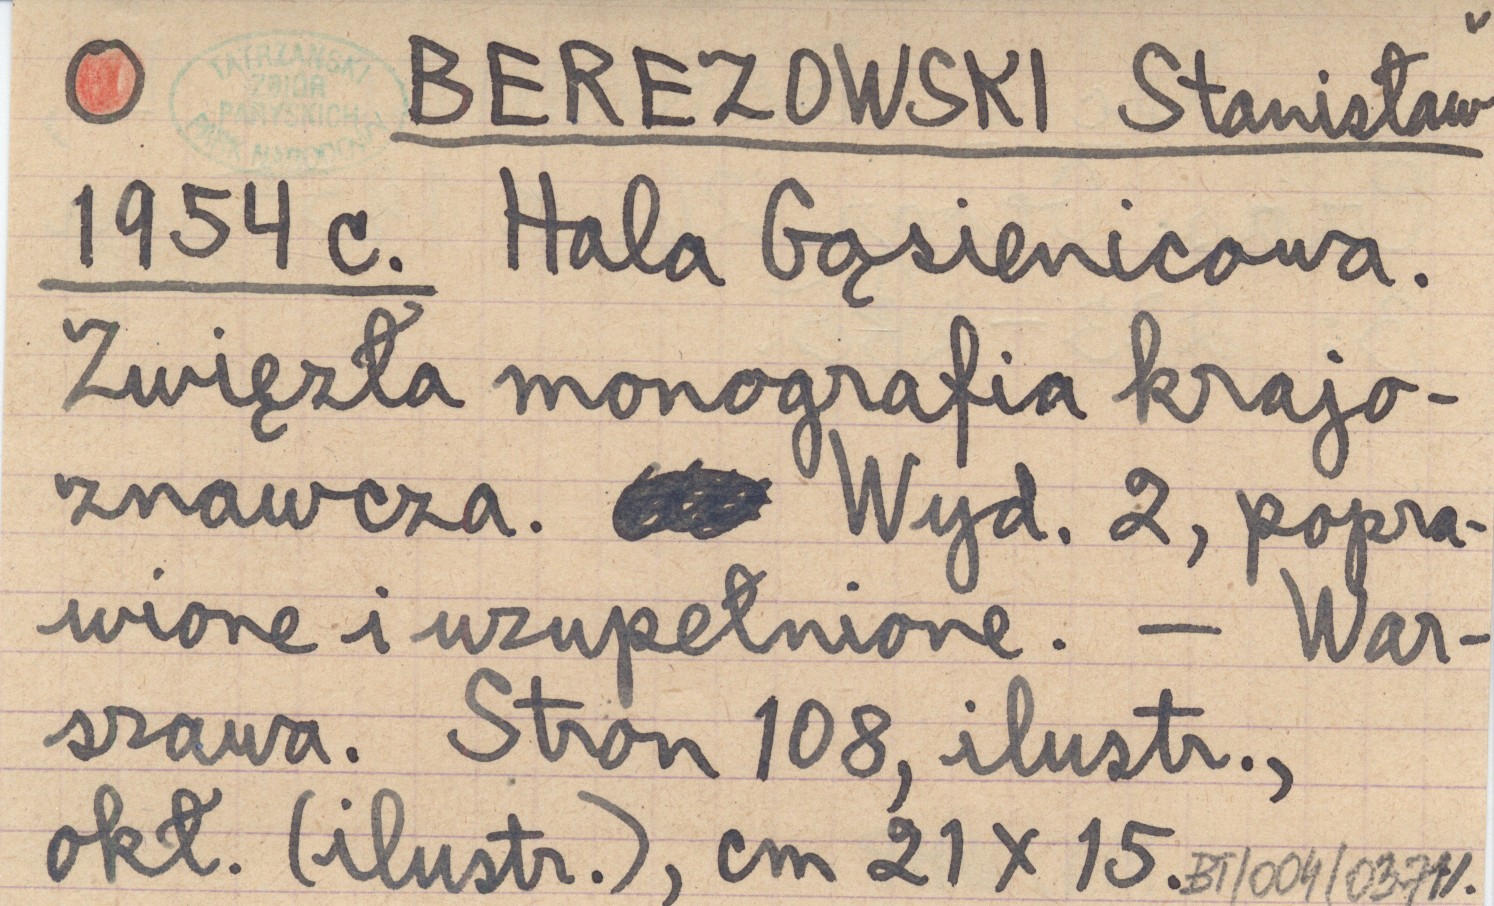 TATRZAŃSKI
ZBIÓR
PARYSKICH
BEREZOWSKI Stanisław
1954 c. Hala Gąsienicowa.
Zwięzła monografia krajo-
znawcza. Wyd. 2, popra-
wione i uzupełnione. — War-
szawa. Stron 108, ilustr.,
okł. (ilustr.), cm 21 x 15.
BT/004/0371/1.